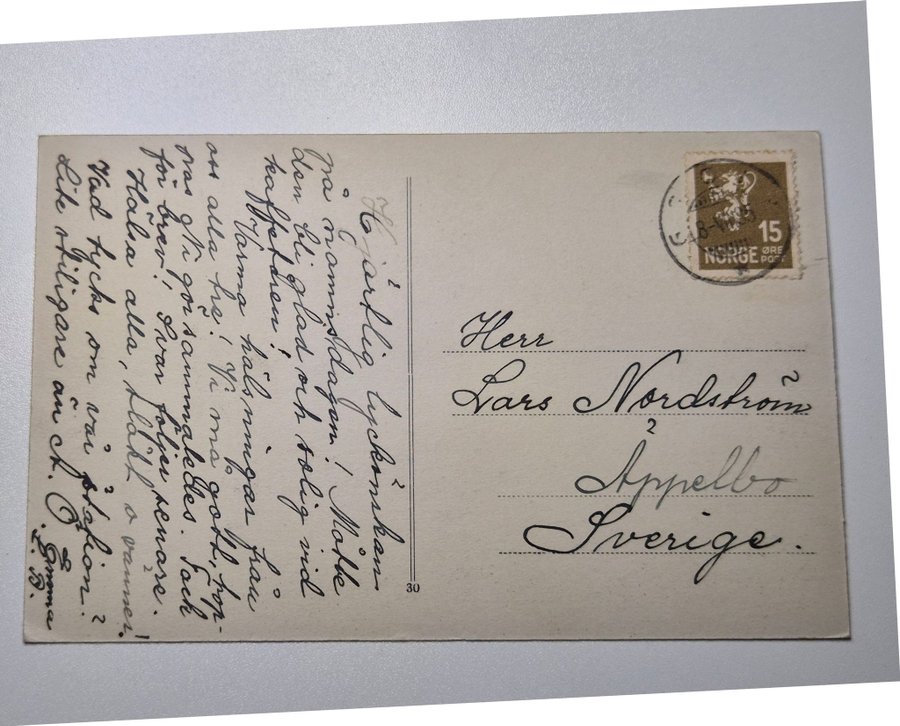 Hjärtlig lyckönskan
på namnsdagen! Måtte
den bli glad och solig vid
kaffetåren!
Varma hälsningar från
oss alla tre! Vi må gott, hop-
pas Ni gör sammaledes. Tack
för brev! Svar följer senare.
Hälsa alla, släkt o vänner!
Vad tycks om vår station?
Lite stiligare än i Ä.
Emma
B.
30
15
NORGE ØRE
POST
Herr
Lars Nordström
Äppelbo
Sverige.